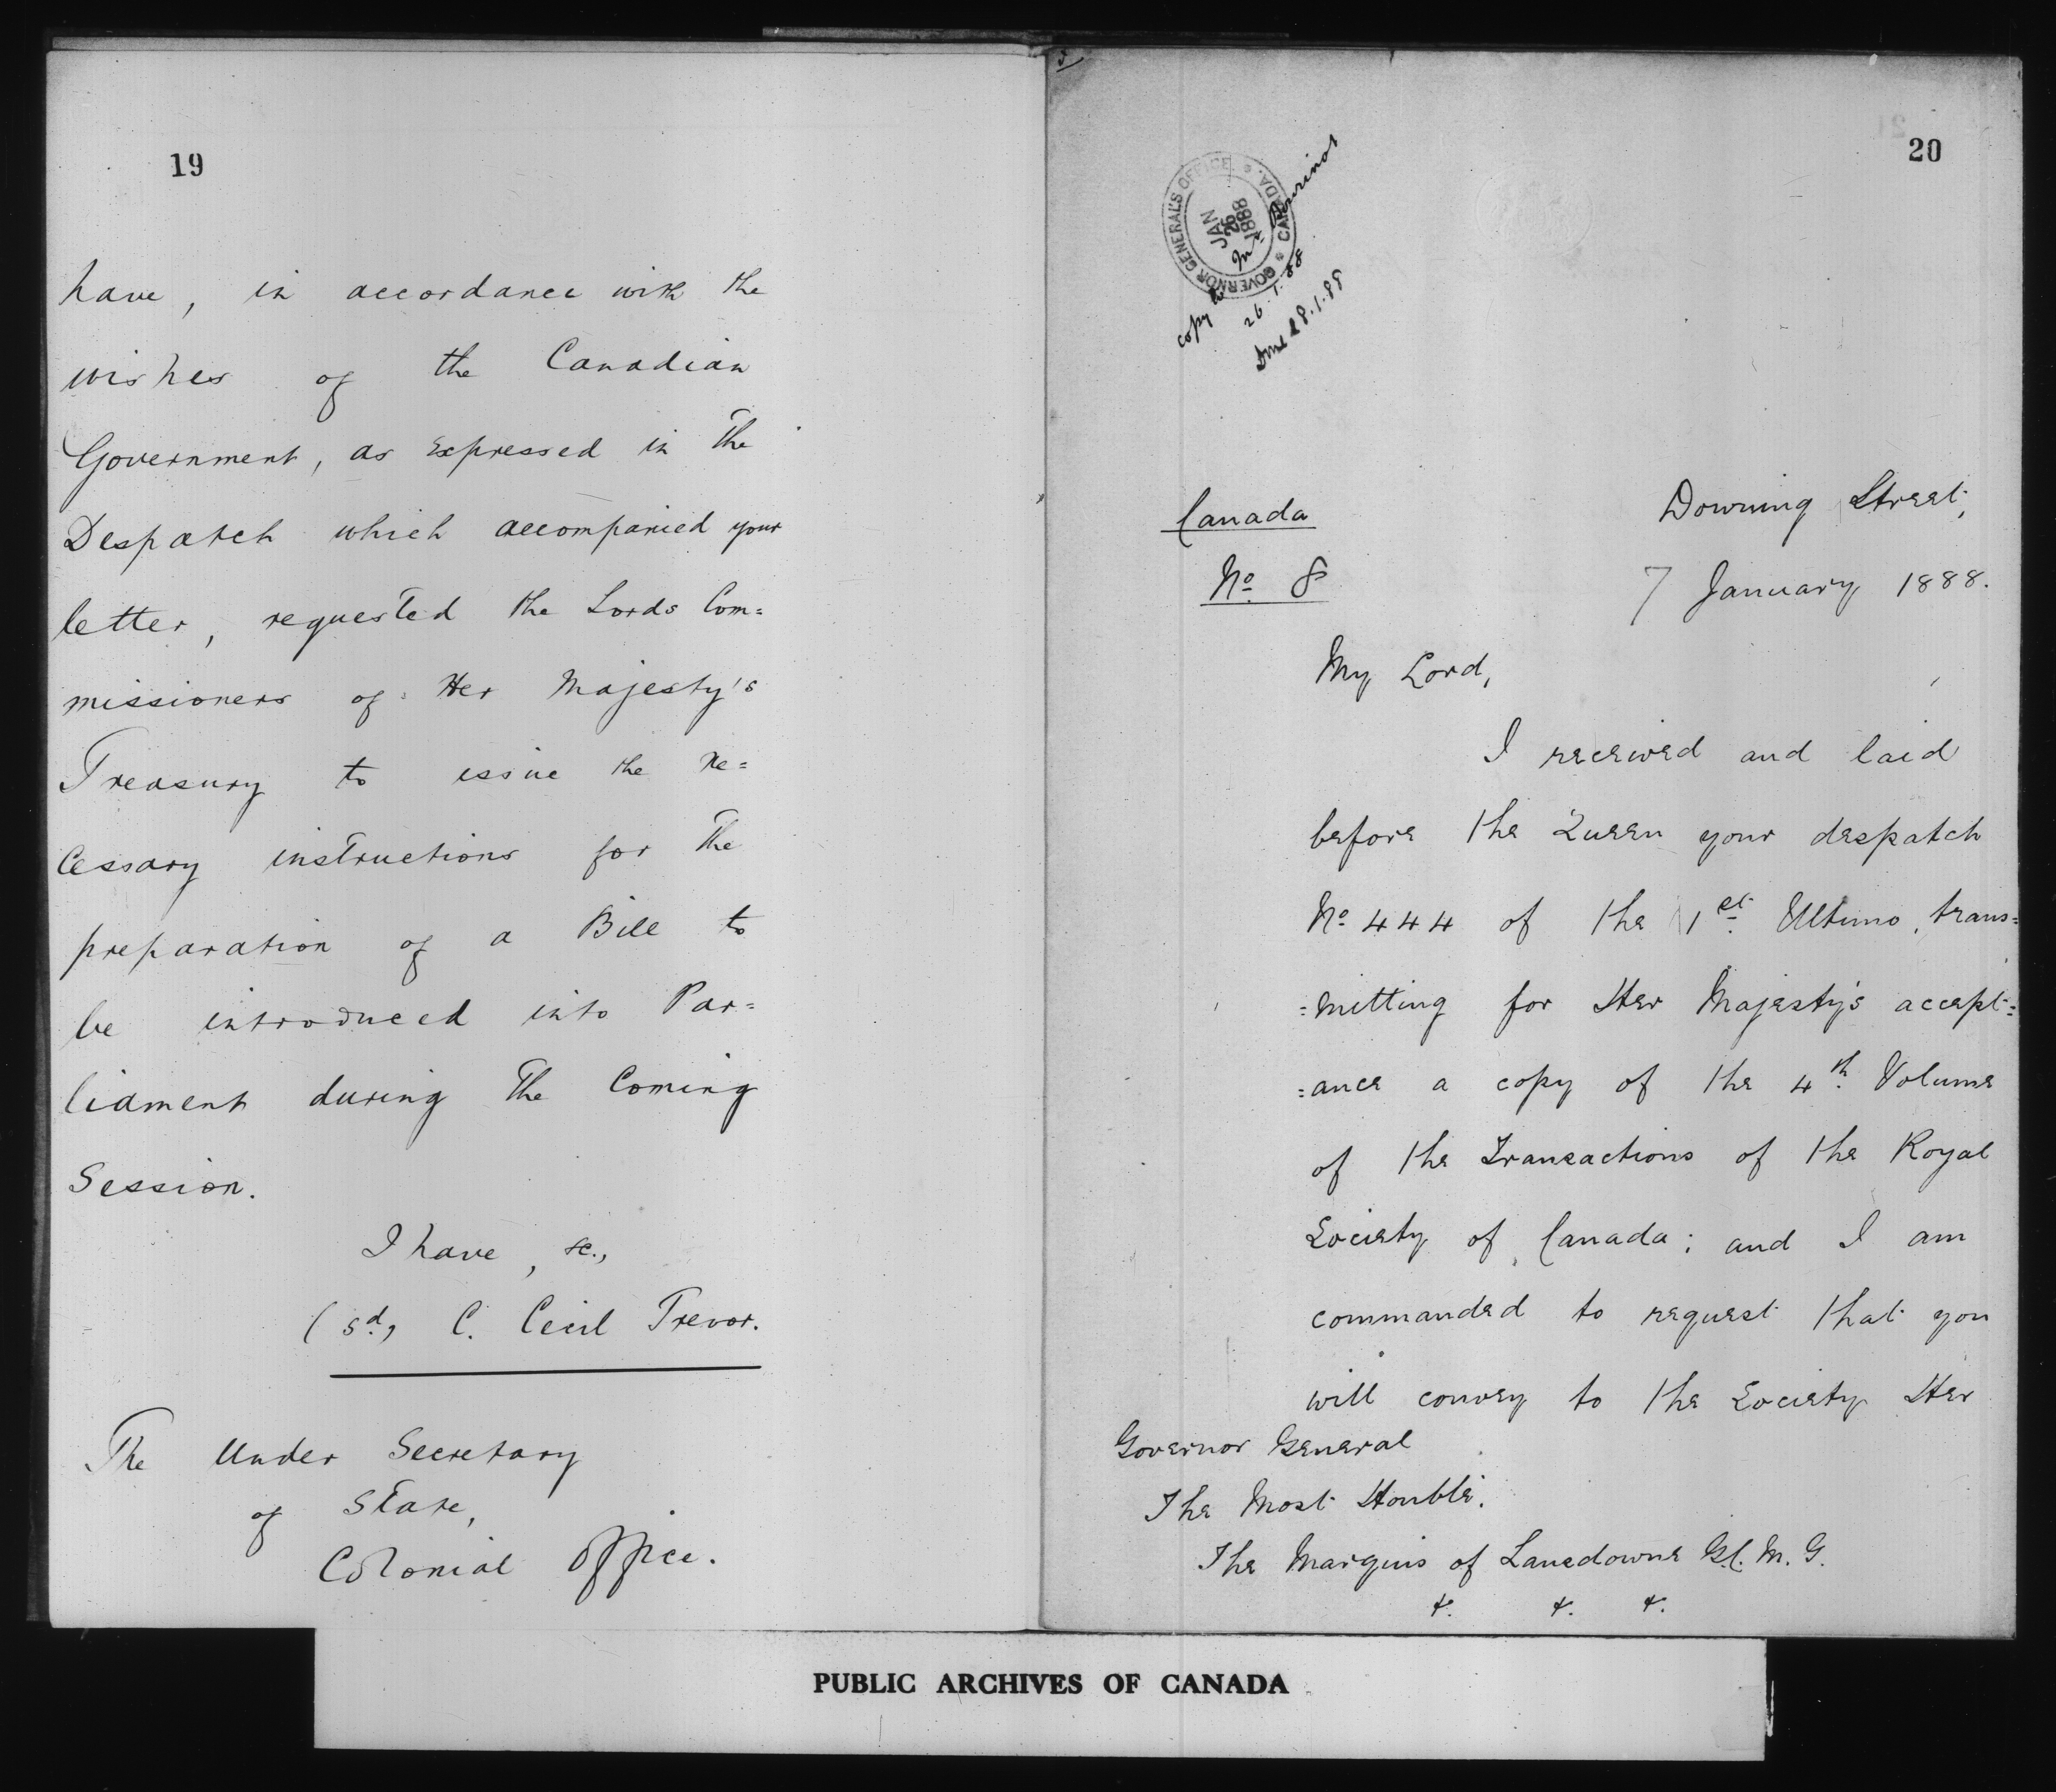 19
have, in accordance with the
wishes of the Canadian
Government, as expressed in the
Despatch which accompanied your
letter, requested the Lords Com=
missioners of Her Majesty's
Treasury to issue the ne=
cessary instructions for the
preparation of a Bill to
be introduced into Par=
liament during the Coming
Session.
I have, &c.,
(sd, C. Cecil Trevor.
The Under Secretary
of State,
Colonial Office.
20
GOVERNOR GENERAL'S OFFICE * CANADA. *
JAN
26
1888
copy to Mr Bourinot
26.1.88
Done 28.1.88
Canada
No 8
Downing Street,
7 January 1888.
My Lord,
I received and laid
before the Queen your despatch
No 444 of the 1st Ultimo, trans=
=mitting for Her Majesty's accept=
=ance a copy of the 4th Volume
of the Transactions of the Royal
Society of Canada; and I am
commanded to request that you
will convey to the Society Her
Governor General
The Most Honble.
The Marquis of Lansdowne G.C.M.G.
&. &. &.
PUBLIC ARCHIVES OF CANADA